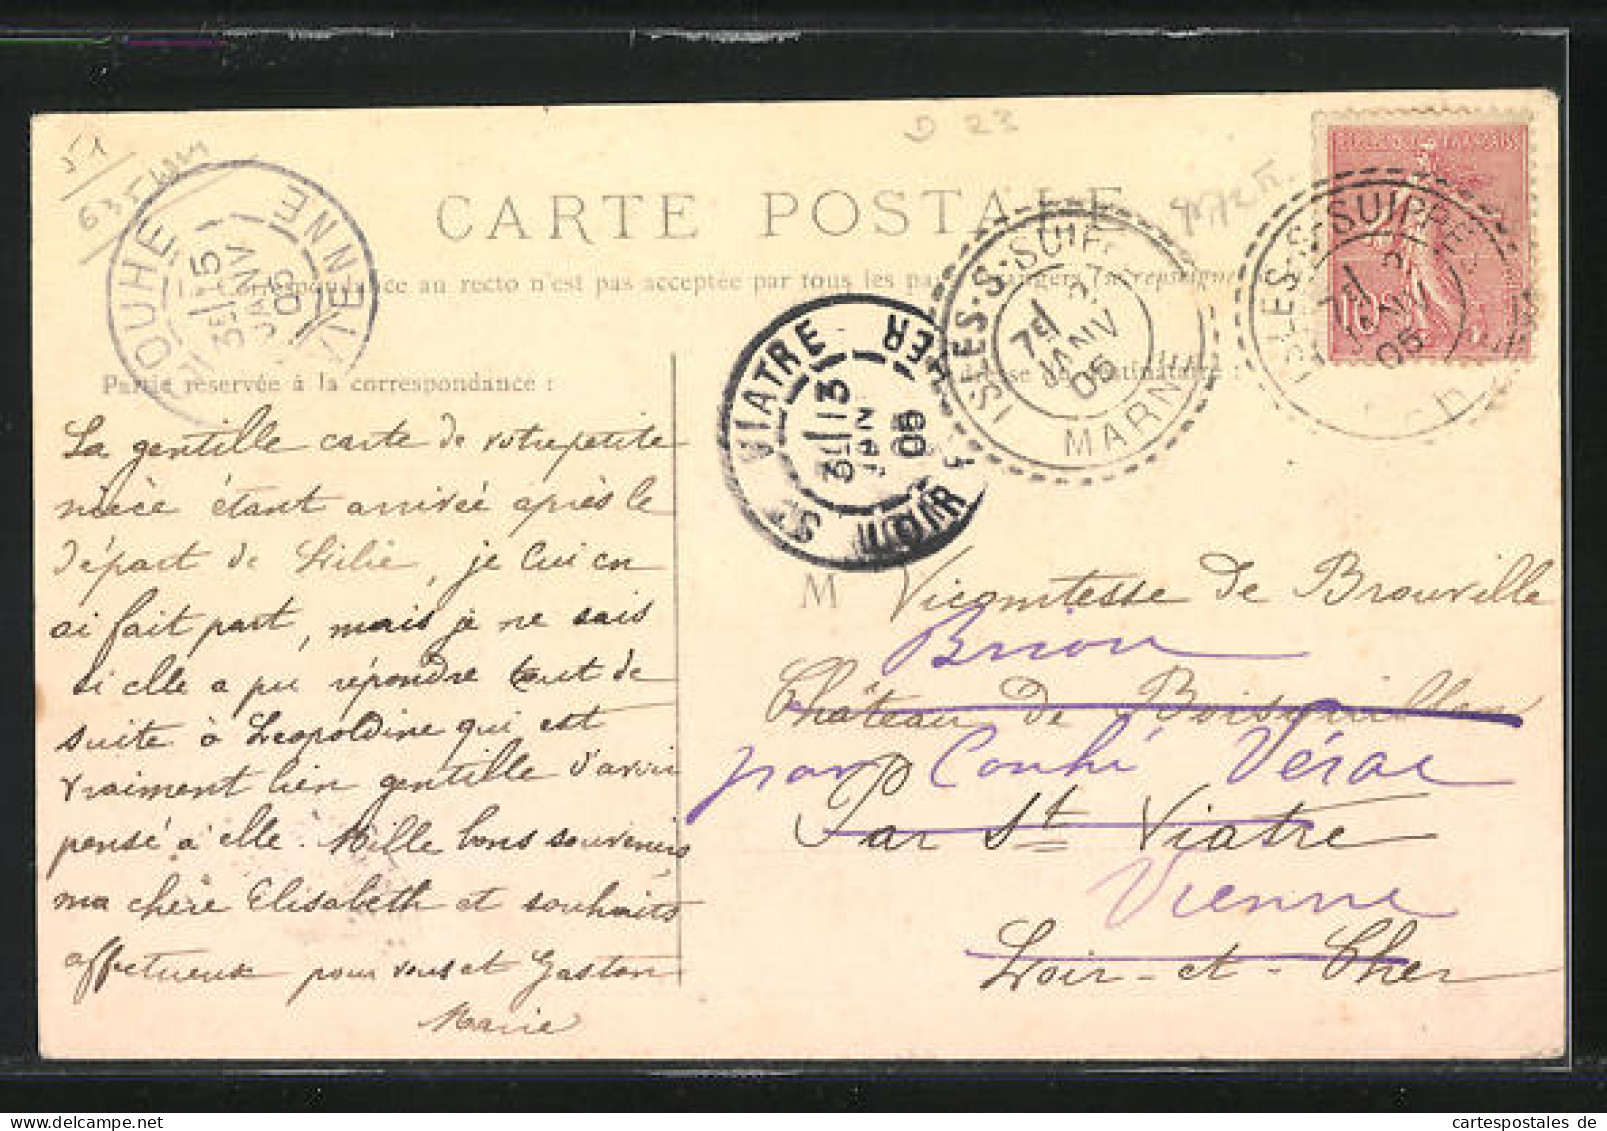 D 23
51
CARTE POSTALE
Correspondance au recto n'est pas acceptée par tous les pa
Partie réservée à la correspondance :
La gentille carte de votre petite
nièce étant arrivée après le
départ de Lilie, je lui en
ai fait part, mais je ne sais
si elle a pu répondre tout de
suite à Leopoldine qui est
vraiment bien gentille d'avoir
pensé à elle. Mille bons souvenirs
ma chère Elisabeth et souhaits
affectueux pour vous et Gaston
Marie
COUHE
VIENNE
15
JANV
05
ST VIATRE
LOIR ET CHER
13
JANV
05
ISLES-S-SUIPPE
7E
JANV
05
MARNE
ISLES-S-SUIPPE
7E
JANV
05
M Vicomtesse de Brouville
Brion
Château de
par Couhé Vérac
Par St Viatre
Vienne
Loir-et-Cher
cartespostales de